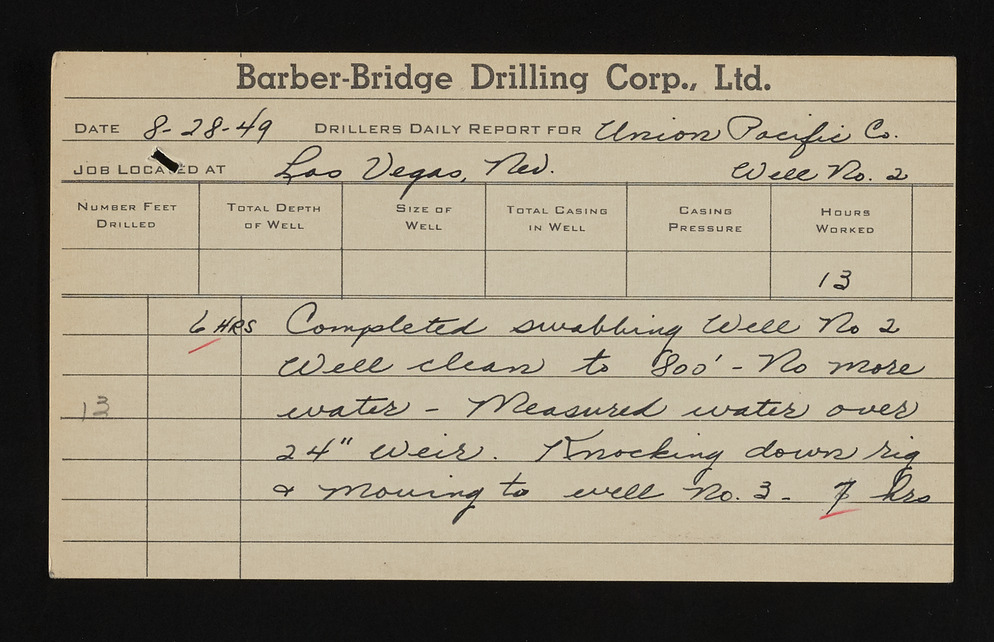 Barber-Bridge Drilling Corp., Ltd.
DATE 8-28-49 DRILLERS DAILY REPORT FOR Union Pacific Co.
JOB LOCATED AT Las Vegas, Nev. Well No. 2
NUMBER FEET DRILLED TOTAL DEPTH OF WELL SIZE OF WELL TOTAL CASING IN WELL CASING PRESSURE HOURS WORKED
13
6 HRS Completed swabbing Well No 2
Well clean to 800' - No more
13 water - Measured water over
24" weir. Knocking down rig
& moving to well No. 3 - 7 hrs